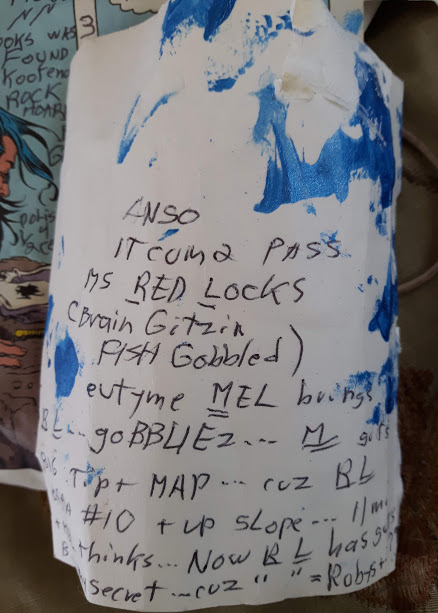 3
OOKS WAS
FOUND
ROCK
HOARY
ANSO
IT cum 2 PASS
MS RED LOCKS
(Brain Gitzin
FISH Gobbled)
eutyme MEL brings
BL... goBBLIEz... M gits
Tip + MAP... cuz BL
#10 + up slope... 11 mi
B thinks... Now BL has
secret... cuz " " = Robst